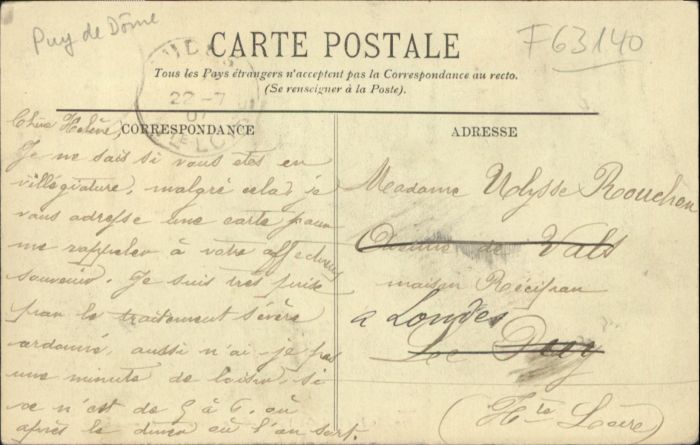 Puy de Dôme
F63140
CARTE POSTALE
Tous les Pays étrangers n'acceptent pas la Correspondance au recto.
(Se renseigner à la Poste).
22-7
CORRESPONDANCE
Chère Hélène,
Je ne sais si vous êtes en
villégiature, malgré cela, je
vous adresse une carte pour
me rappeler à votre affectueux
souvenir. Je suis très prise
par le traitement sévère
ordonné, aussi n'ai-je pas
une minute de loisir, si
ce n'est de 5 à 6. où
après le diner où l'on sort.
ADRESSE
Madame Ulysse Rouchon
Avenue de Vals
maison Récipon
à Loudes
Le Puy
(Hte Loire)